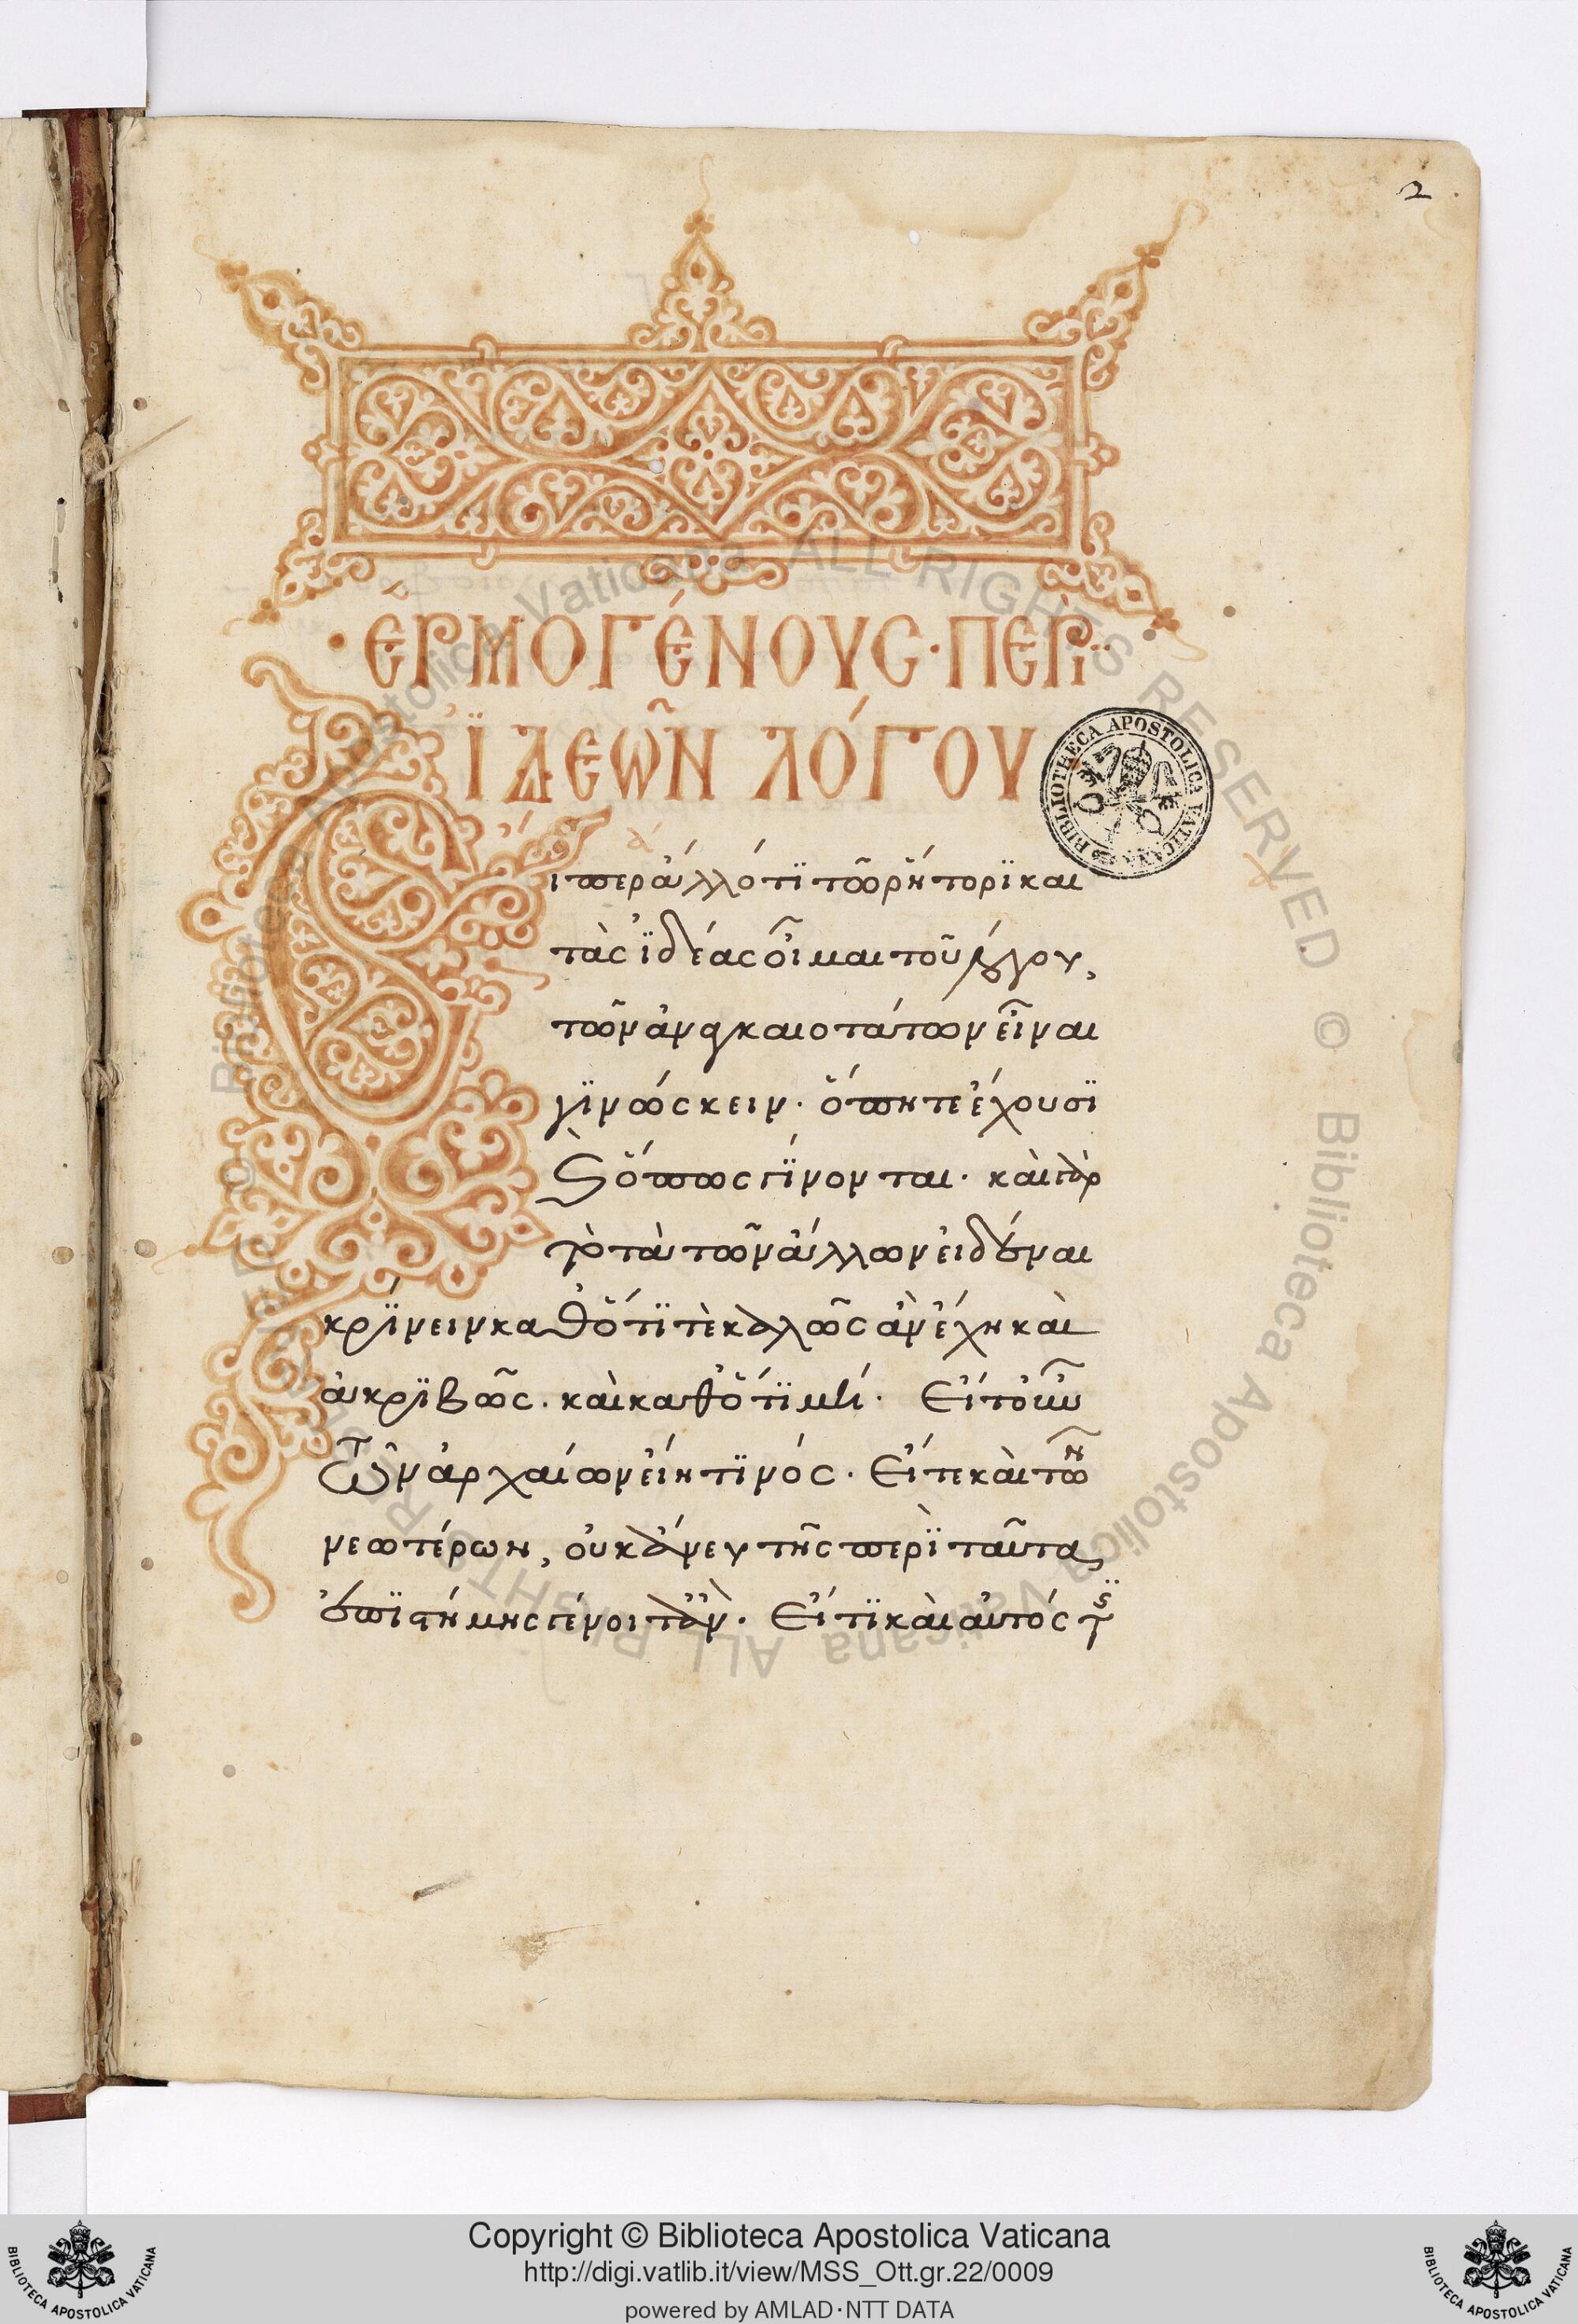 2
ἙΡΜΟΓΈΝΟΥΣ· ΠΕΡῚ
ἸΔΕΩ͂Ν ΛΌΓΟΥ
α΄
Εἴπερ ἄλλό τϊ τῶ ῥήτορϊ και
τὰς ϊδέας οἶμαι τοῦ λόγου,
τῶν ἀναγκαιοτάτων εἶναι
γϊνώσκειν· ὅπη τε ἔχουσϊ
καὶ ὅπως γίνονται· καὶ γὰρ
τὸ τὰ τῶν ἄλλων εἰδέναι
κρίνειν καθότϊ τὲ καλῶς ἂν ἔχη καὶ
ἀκρϊβῶς· καὶ καθότϊ μή· Εἴ τουν
τῶν ἀρχαίων εἴη τϊνός· Εἴτε καὶ τῶν
νεωτέρων, οὐκ ἄνευ τῆς περὶ ταῦτα
ἐπϊστήμης γένοιτ' ἄν· Εἴ τϊ καὶ αὐτός τϊς
BIBLIOTHECA APOSTOLICA VATICANA
© Biblioteca Apostolica Vaticana ALL RIGHTS RESERVED
© Biblioteca Apostolica Vaticana ALL RIGHTS RESERVED
Copyright © Biblioteca Apostolica Vaticana
http://digi.vatlib.it/view/MSS_Ott.gr.22/0009
powered by AMLAD·NTT DATA
BIBLIOTECA APOSTOLICA VATICANA
BIBLIOTECA APOSTOLICA VATICANA